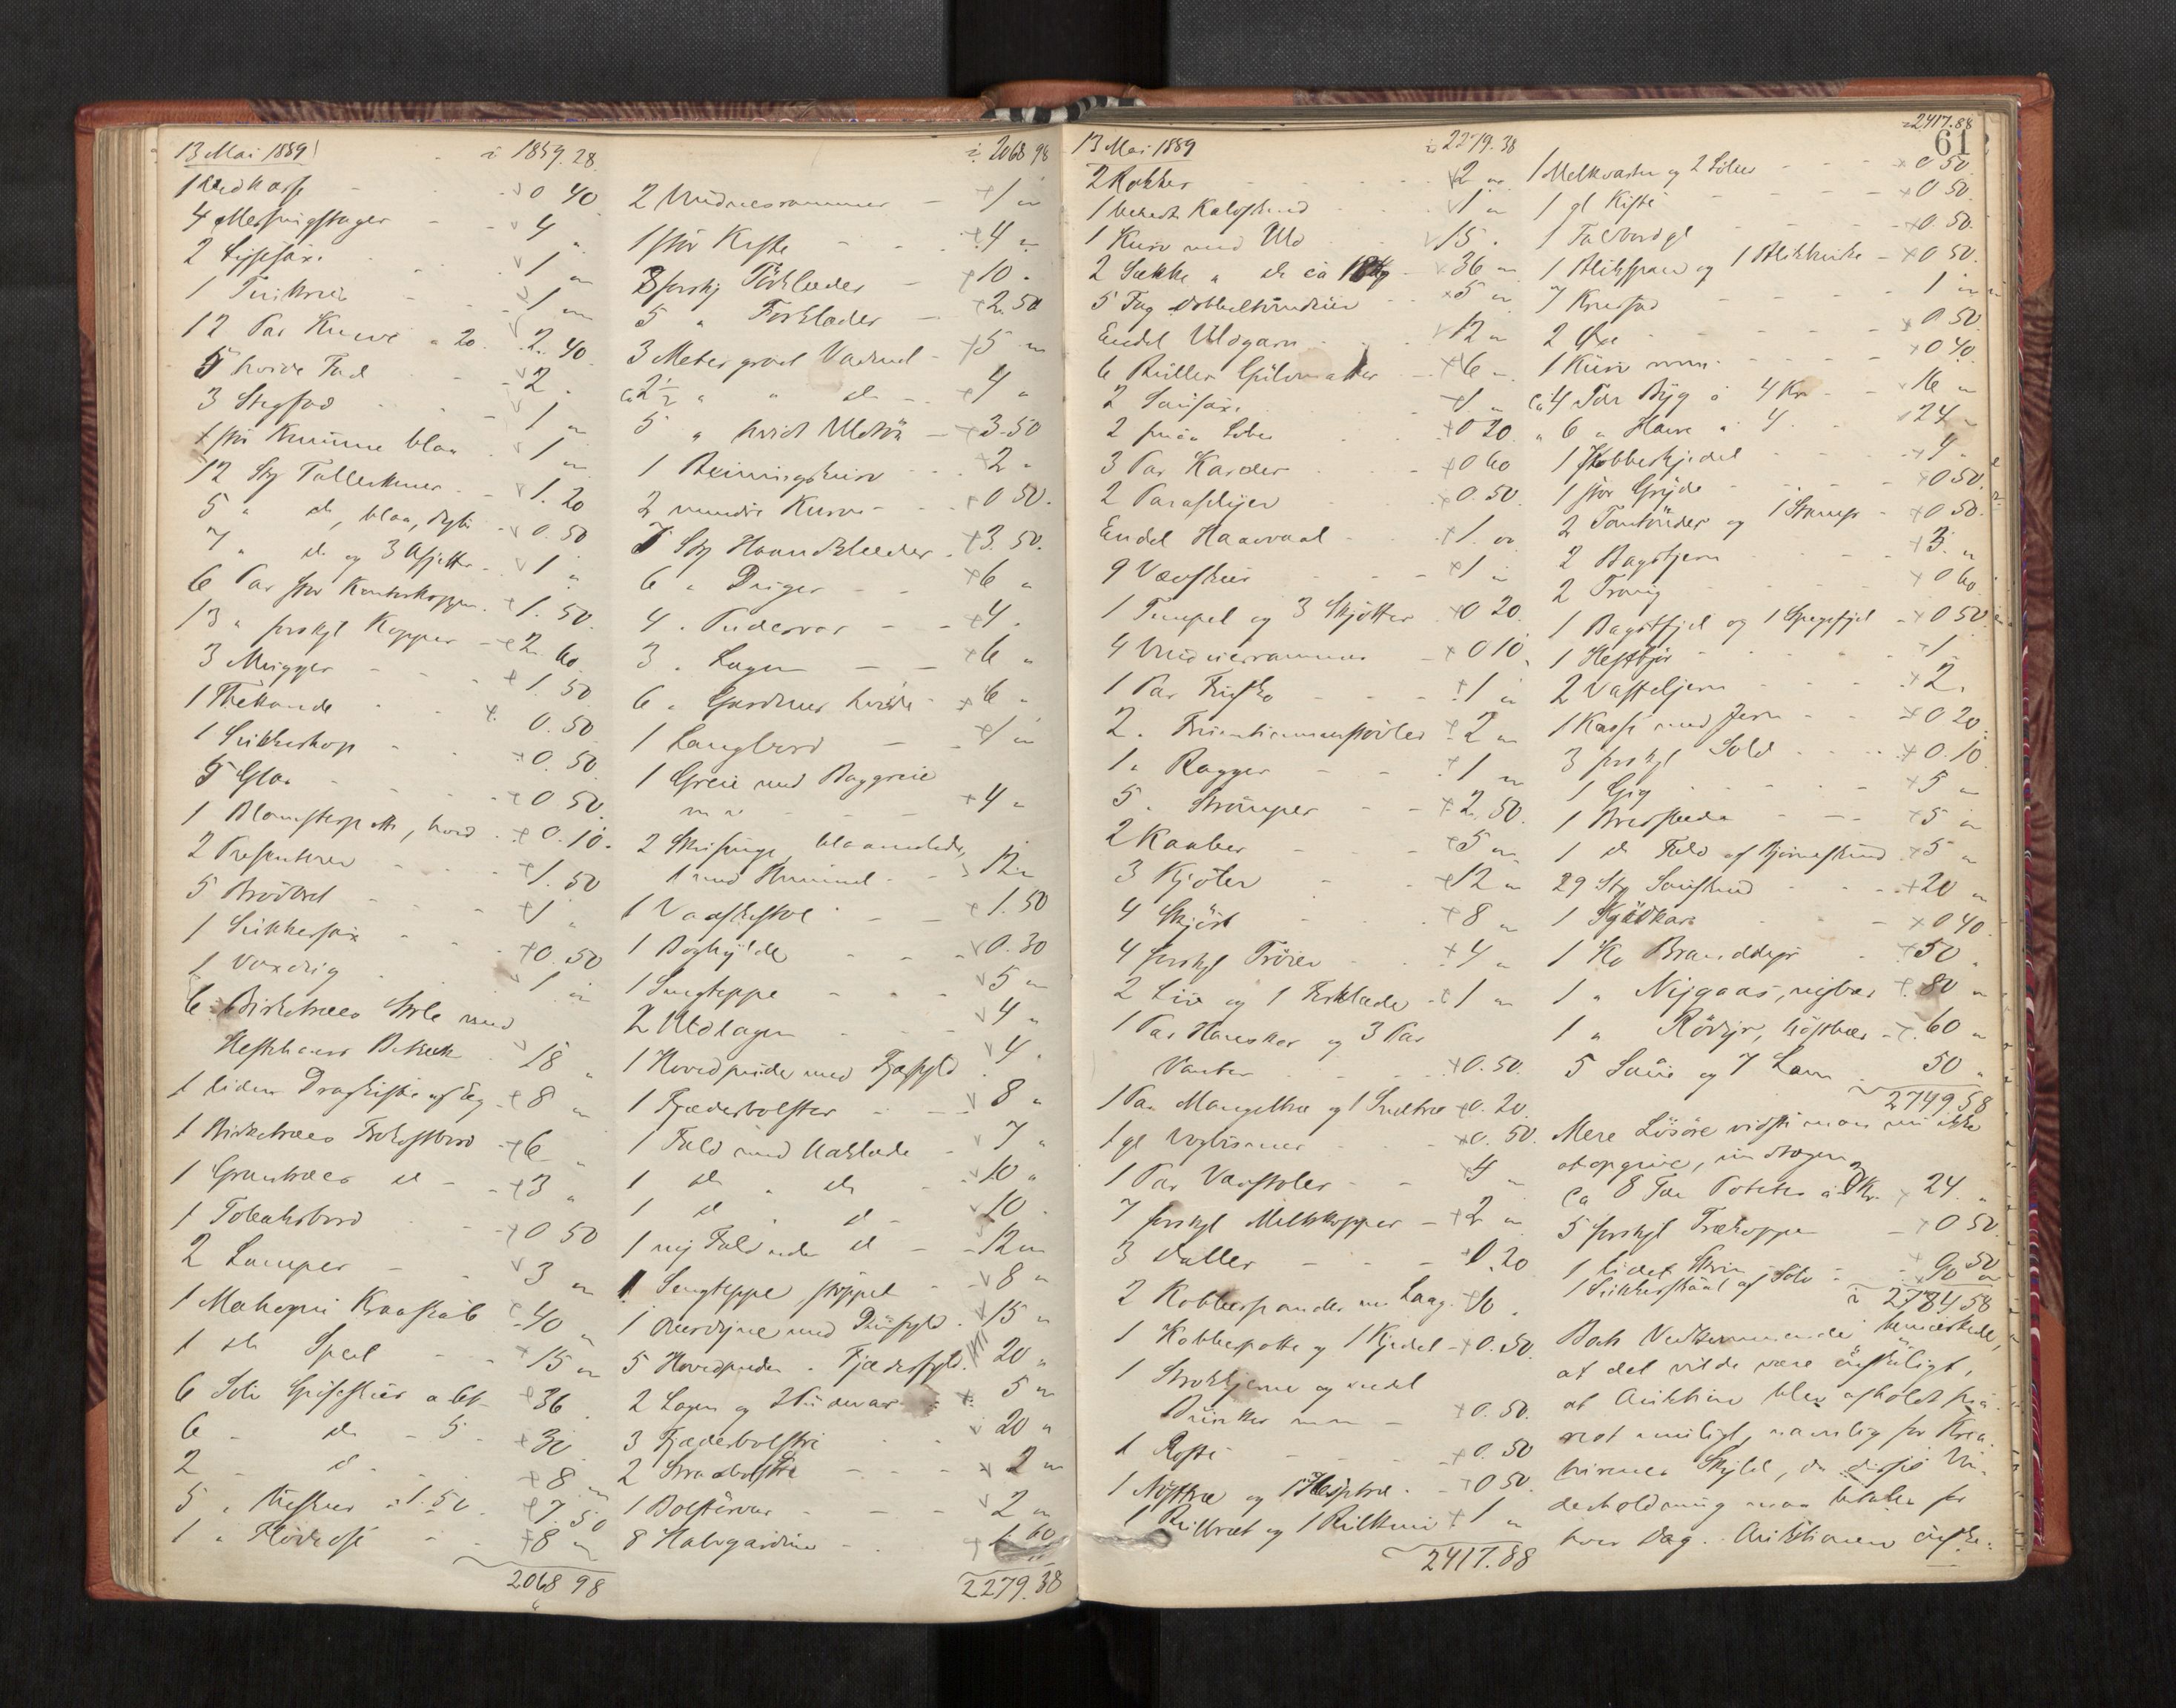 13 Mai 1889
i 1859.28
1 Vedkasse 0 40
4 Messingstager 4 "
2 Lysesaxe 1 "
1 1 "
12 Par Knive a 20 2.40
5 hvide Fad 2 "
3 Stegfad 1 "
1 stor Kumme blaa 1 "
12 Stk Tallerkener 1.20
5 " do, blaa, dybe 0.50
7 " do og 3 Asjetter 1 "
6 Par store 1.50
13 " forskjl Kopper 2.60
3 Mugger 1.50
1 Thekande 0.50
1 Sukkerkop 0.50
5 Glas 0 50
1 Blomsterpotte, hvid 0.10
2 Presenterer 1.50
5 Brödbret 1 "
1 Sukkersax 0.50
1 Voxdug 1 "
6 Birketræes Stole med
Hestehaars Betræk 18 "
1 liden Dragkiste af Eg 8 "
1 Birketræes Frokostbord 6 "
1 Grantræes do 3 "
1 Tobaksbord 0 50
2 Lamper 3 "
1 Mahogni Kraaskab 40 "
1 do Speil 15 "
6 Sölv Spiseskeer a 6 36
6 " do " 5 30
2 " do 8 "
5 " Theskeer a 1.50 7.50
1 " Flödeose 8 "
2068 98
i 2068 98
2 Vinduesrammer 1 "
1 stor Kiste 4 "
8 forskj Törklæder 10 "
5 " Forklæder 2.50
3 Meter graat Vadmel 5 "
ca 2½ " " do 4 "
5 " hvidt Uldtöi 3.50
1 Kurv 2 "
2 mindre Kurve 0 50
7 Stk Haandklæder 3.50
6 " Duger 6 "
4 " Pudevar 4 "
3 " Lagen 6 "
6 " Gardiner hvide 6 "
1 Langbord 1 "
1 Greie med Baggreie
m m 4 "
2 blaamalede,
1 med Himmel 12 "
1 Vaskestol 1.50
1 Boghylde 0.30
1 Sengteppe 5 "
2 Uldlagen 4 "
1 Hovedpude med Fjærfyld 4 "
1 Fjæderbolster 8 "
1 Fæld med Uaklæde 7 "
1 do " do 10 "
1 do do 10 "
1 ny Fæld uden do 12 "
1 Sengteppe, stoppet 8 "
1 Overdyne med Duunfyld 15 "
5 Hovedpuder " Fjæderfyld 20 "
2 Lagen og 2 Pudevar 5 "
3 Fjæderbolstre 20 "
2 Straabolstre 2 "
1 Bolstervar 2 "
8 Halvgardiner 1 60
2279.38
13 Mai 1889
i 2279.38
2 Rokker 2 "
1 beredt Kalvskind 1 "
1 Kurv med Uld 15 "
2 Sække " do ca 18 kg 36 "
5 Fag Dobbeltvinduer 5 "
Endel Uldgarn 12 "
6 Ruller Gulvmatter 6 "
2 Sausaxe 1 "
2 smaa Sober 0 20
3 Par Karder 0 60
2 Paraplyer 0.50
Endel 1 "
9 Vævskeer 1 "
1 Tempel og 3 Skjötter 0 20
4 Vinduesrammer 0 10
1 Par Tugsko 1 "
2 " Fruentimmerstövler 2 "
1 " Ragger 1 "
5 " Strömper 2.50
2 Kaaber 5 "
3 Kjoler 12 "
4 Skjört 8 "
4 forskjl Tröier 4 "
2 Liv og 1 Forklæde 1 "
1 Par Hansker og 3 Par
Vanter 0.50
1 Par Mangeltræ og 1 0.20
1 gl 0.50
1 Par Vævstoler 4 "
7 forskjl Melkkopper 2 "
3 Daller 0.20
2 Kobberpander m Laag 16 "
1 Kobbepotte og 1 Kjedel 0.50
1 og endel
m m 0.50
1 0.50
1 Nöstræ og 1 Hespetræ 0 50
1 Rulbræt og 1 1 "
2417.88
2417.88
61
1 Melkvarter og 2 Söler 0 50
1 gl Kiste 0 50
1 Foldbord gl 0.50
1 Blikspand og 1 0 50
7 Krusfad 1 "
2 Öxe 0 50
1 Kurv m m 0 40
ca 4 Tdr Byg a 4 Kr 16 "
" 6 " Havre a 4 24 "
1 Kobberkjedel 4 "
1 stor Gryde 0 50
2 Tomtönder og 1 Stamp 0 50
2 Bagstjern 3 "
2 Traug 0 60
1 Bagstfjel og 1 0 50
1 1
2 Vaffeljern 2 "
1 Kasse med Jern 0 20
3 forskjl Sold 0.10
1 Gig 5 "
1 Bredslæde 5 "
1 do Fæld af Björneskind 5 "
29 Stk Saueskind 20 "
1 Kjödkar 0 40
1 Ko Branddeyr 50 "
1 " Nygaas, nybær 80 "
1 " Rödsyr, höstbær 60 "
5 Sauer og 7 Lam 50 "
2749.58
Mere Lösöre vidste man nu ikke
at opgive, undtagen
ca 8 Tdr Poteter a 3 Kr 24 "
5 forskjl Trækopper 0 50
1 lidet Skrin 0 50
1 Sukkerskaal af Sölv 10 "
i 2784 58
Boets Vedkommende bemærkede,
at det vilde være önskeligt,
at Auktion blev afholdt sna-
rest muligt, navnlig for Krea-
turenes Skyld, da disses Un-
derholdning maa betales for
hver Dag. Auktionen önske-